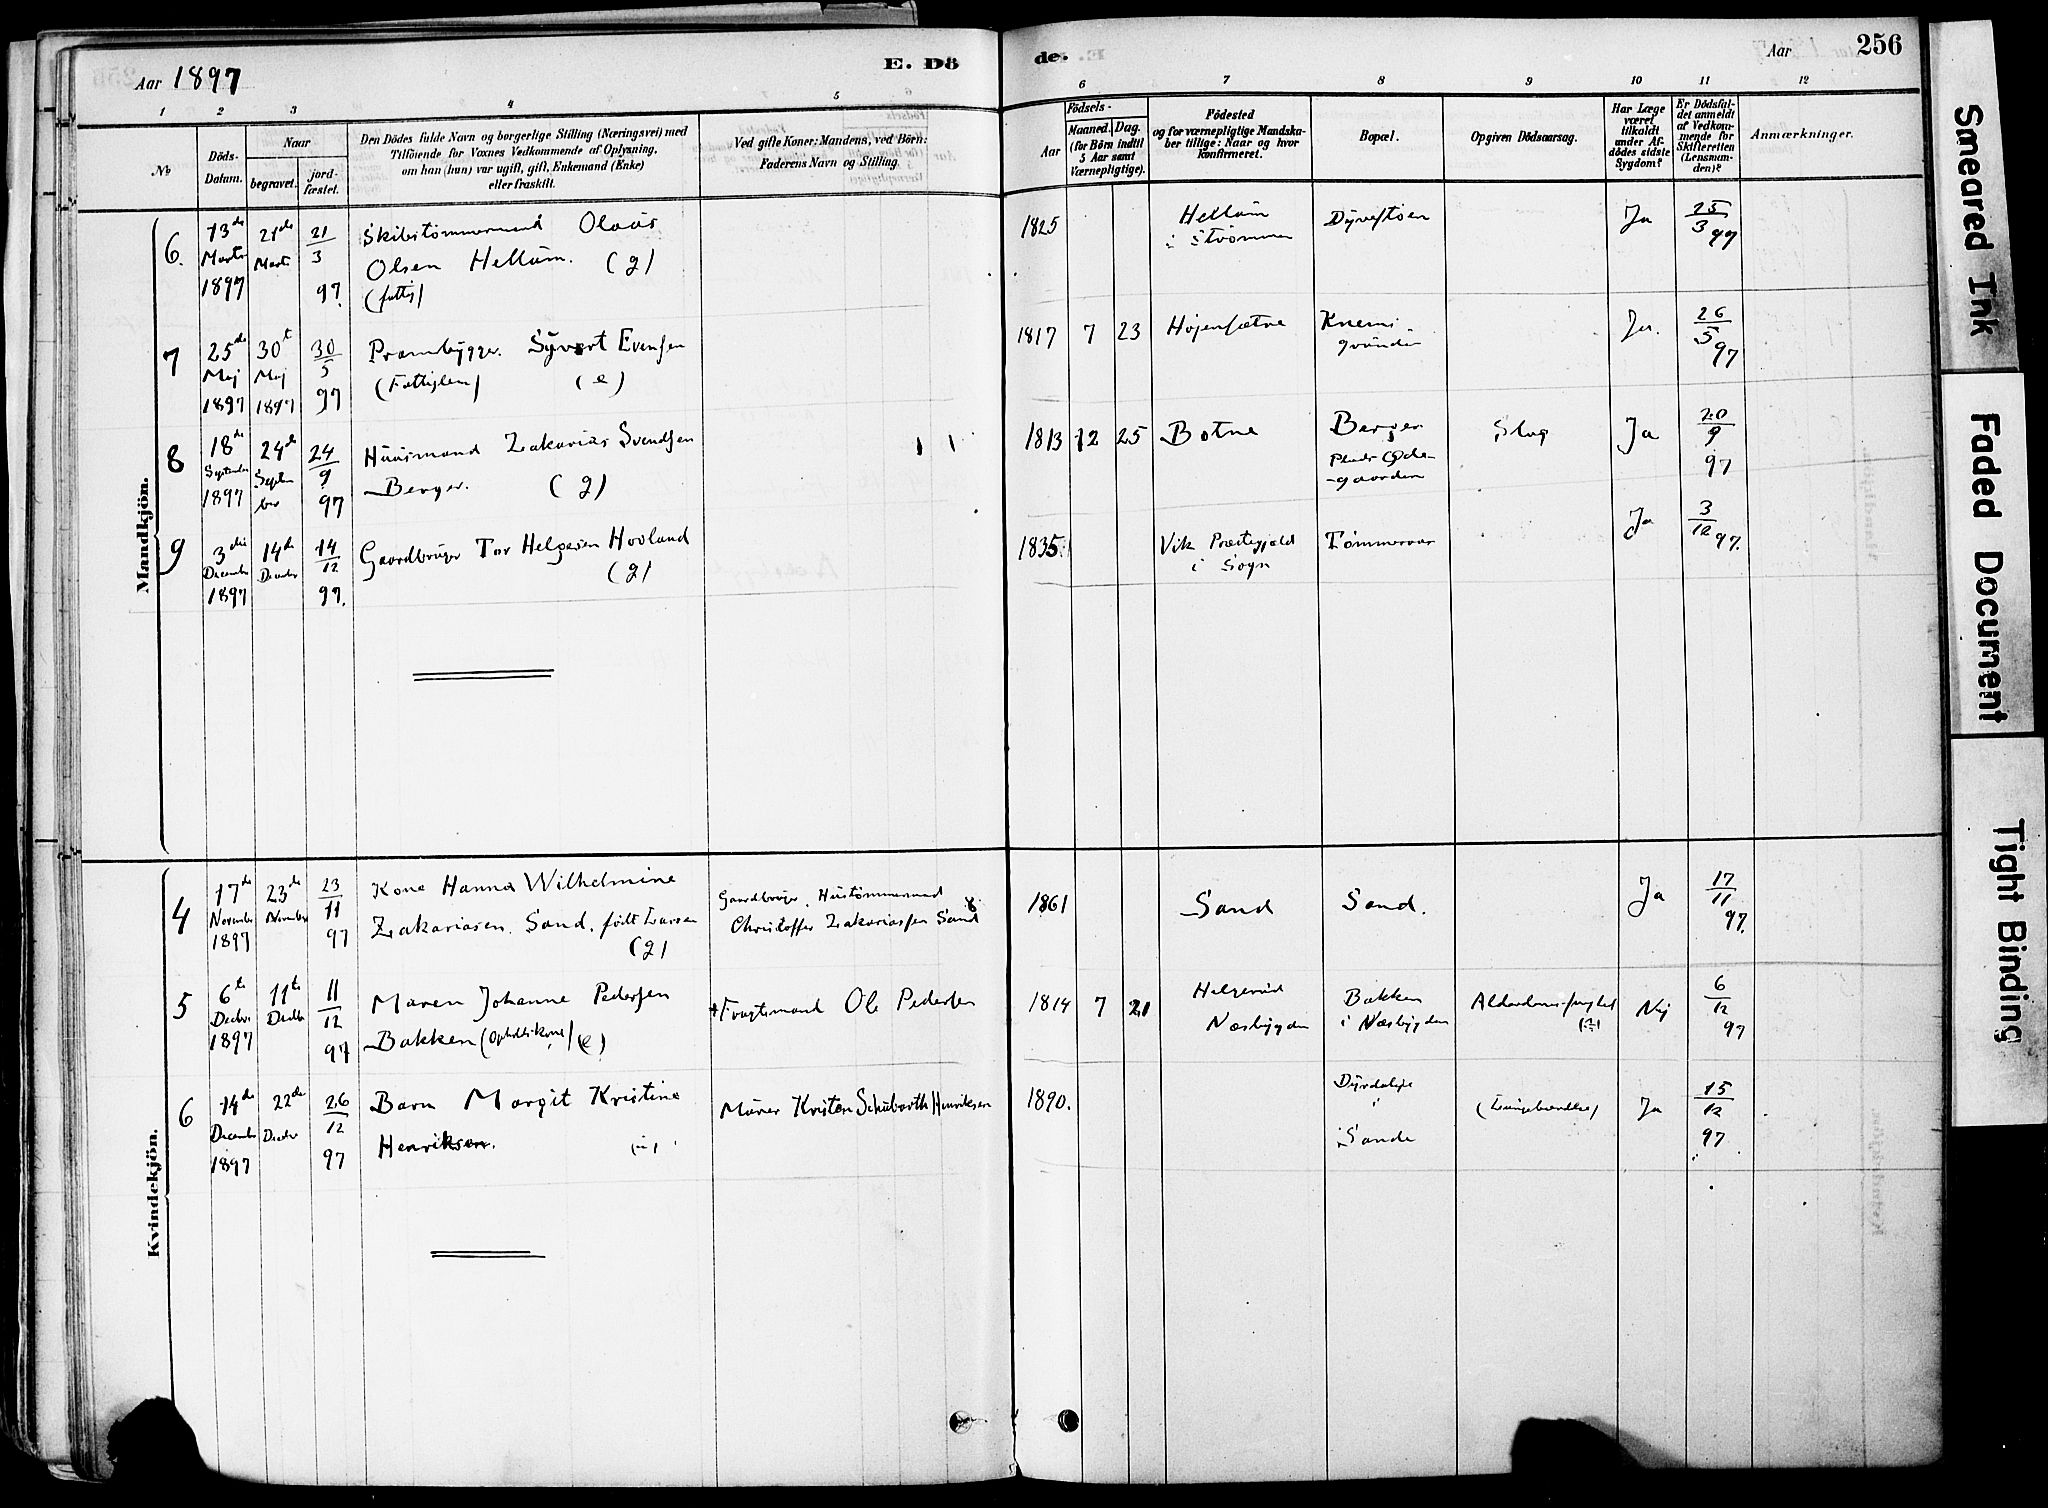 Aar 1897
E. Dö
de.
Aar
256
1 2 3 4 5
6 7 8 9 10 11 12
No
Döds-
Datum.
Naar
begravet.
jord-
fæstet.
Den Dödes fulde Navn og borgerlige Stilling (Næringsvei) med
Tilföiende for Voxnes Vedkommende af Oplysning,
om han (hun) var ugift, gift, Enkemand (Enke)
eller fraskilt.
Ved gifte Koner: Mandens, ved Börn:
Faderens Navn og Stilling.
Födsels-
Aar
Maaned. Dag.
(for Börn indtil
5 Aar samt
Værnepligtige).
Födested
og for værnepligtige Mandska-
ber tillige: Naar og hvor
konfirmeret.
Bopæl.
Opgiven Dödsaarsag.
Har Læge
været
tilkaldt
under Af-
dödes sidste
Sygdom?
Er Dödsfal-
det anmeldt
af Vedkom-
mende for
Skifteretten
(Lensman-
den)?
Anmærkninger.
Mandkjön.
6.
13de
Marts
1897
21de
Marts
21
3
97.
Skibstømmermand Olaus
Olsen Hellum. (g)
(fattig)
1825
Hellum
i Strømmen
Dyvestøen
Ja
25
3 97
7
25de
Maj
1897
30t
Maj
1897
30
5
97
Prambygger. Syvert Evensen
(Fattiglem) (e)
1817 7 23
Højensætre
Knemi
grunden
Ja.
26
5 97
8
18de
September
1897
24de
Septem
ber
24
9
97
Huusmand Zakarias Svendsen
Berger. (g)
1813 12 25
Botne
Berger
gaarden
Slag
Ja
20
9
97
9
3die
December
1897
14de
December
14
12
97.
Gaardbruger Tor Helgesen Hovland
(g)
1835
Vik Præstegjeld
i Sogn
Tømmeraas
Ja
3
12 97.
Kvindekjön.
4
17de
November
1897
23de
November
23
11
97
Kone Hanna Wilhelmine
Zakariasen Sand. født Larsen
(g)
Gaardbruger. Hustømmermand
Christoffer Zakariassen Sand
1861
Sand
Sand.
Ja
17
11
97.
5
6te
Decbr
1897
11te
Decbr
11
12
97
Maren Johanne Pedersen
Bakken (Opholdskone) (e)
Fragtemand Ole Pedersen
1814 7 21
Helgerud
Næsbygden
Bakken
i Næsbygden
Alderdomssvaghed
Nej
6
12
97
6
14de
December
1897
22de
Decbr
26
12
97
Barn Margit Kristine
Henriksen.
Murer Kristen Schubarth Henriksen
1890.
i
Sande
Ja
15
12
97
Smeared Ink
Faded Document
Tight Binding